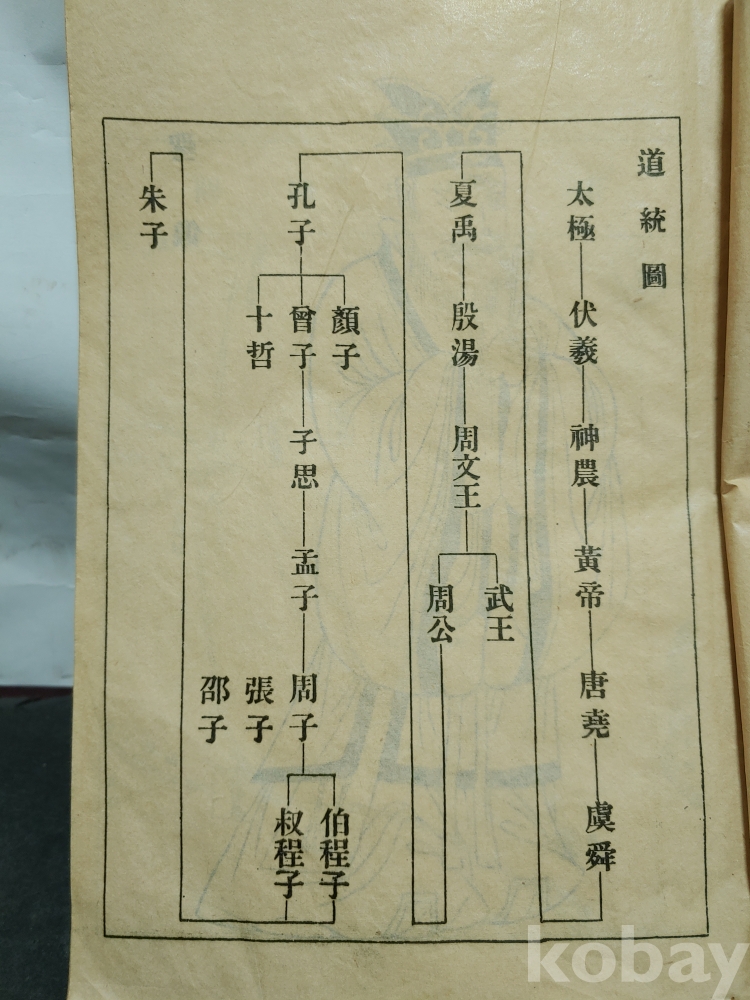 道統圖
太極
伏羲
神農
黃帝
唐堯
虞舜
夏禹
殷湯
周文王
武王
周公
孔子
顏子
曾子
十哲
子思
孟子
周子
張子
邵子
伯程子
叔程子
朱子
kobay